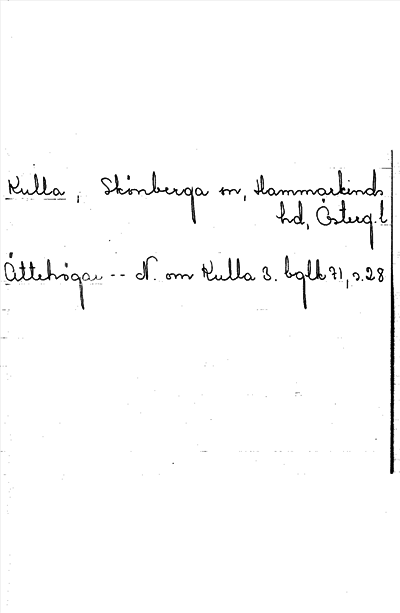 Kulla, Skönberga sn, Hammarkinds
hd, Österg.l
Ättehögar -- N. om Kulla 3. bglk 71, s.28